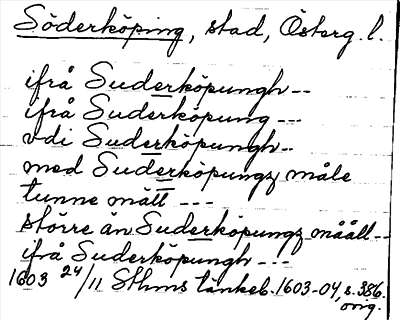 Söderköping, stad, Österg. l.
ifrå Suderköpungh--
ifrå Suderköpung ---
vdi Suderköpungh--
med Suderköpungz måle
tunne mätt ---
större än Suderköpungz määtt--
ifrå Suderköpungh ---
1603 24/11 Sthms tänkeb. 1603-04, s. 386.
orig.